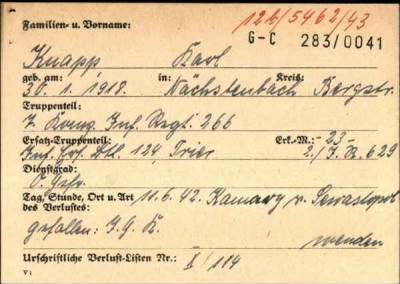 Familien- u. Vorname:
12t/5462/43
G-C 283/0041
Knapp Karl
geb. am: in: Kreis:
30. 1. 1918. Nächstenbach Bergstr.
Truppenteil:
7. Komp. Inf. Regt. 266
Ersatz-Truppenteil: Erk.-M.: -23-
Inf. Ers. Btl. 124, Trier 2./J.R. 629
Dienstgrad:
O. Gefr.
Tag, Stunde, Ort u. Art 11. 6. 42. Kamary v. Sewastopol
des Verlustes:
gefallen: J.G. K.
wenden
Urschriftliche Verlust-Listen Nr.: I/114
v: